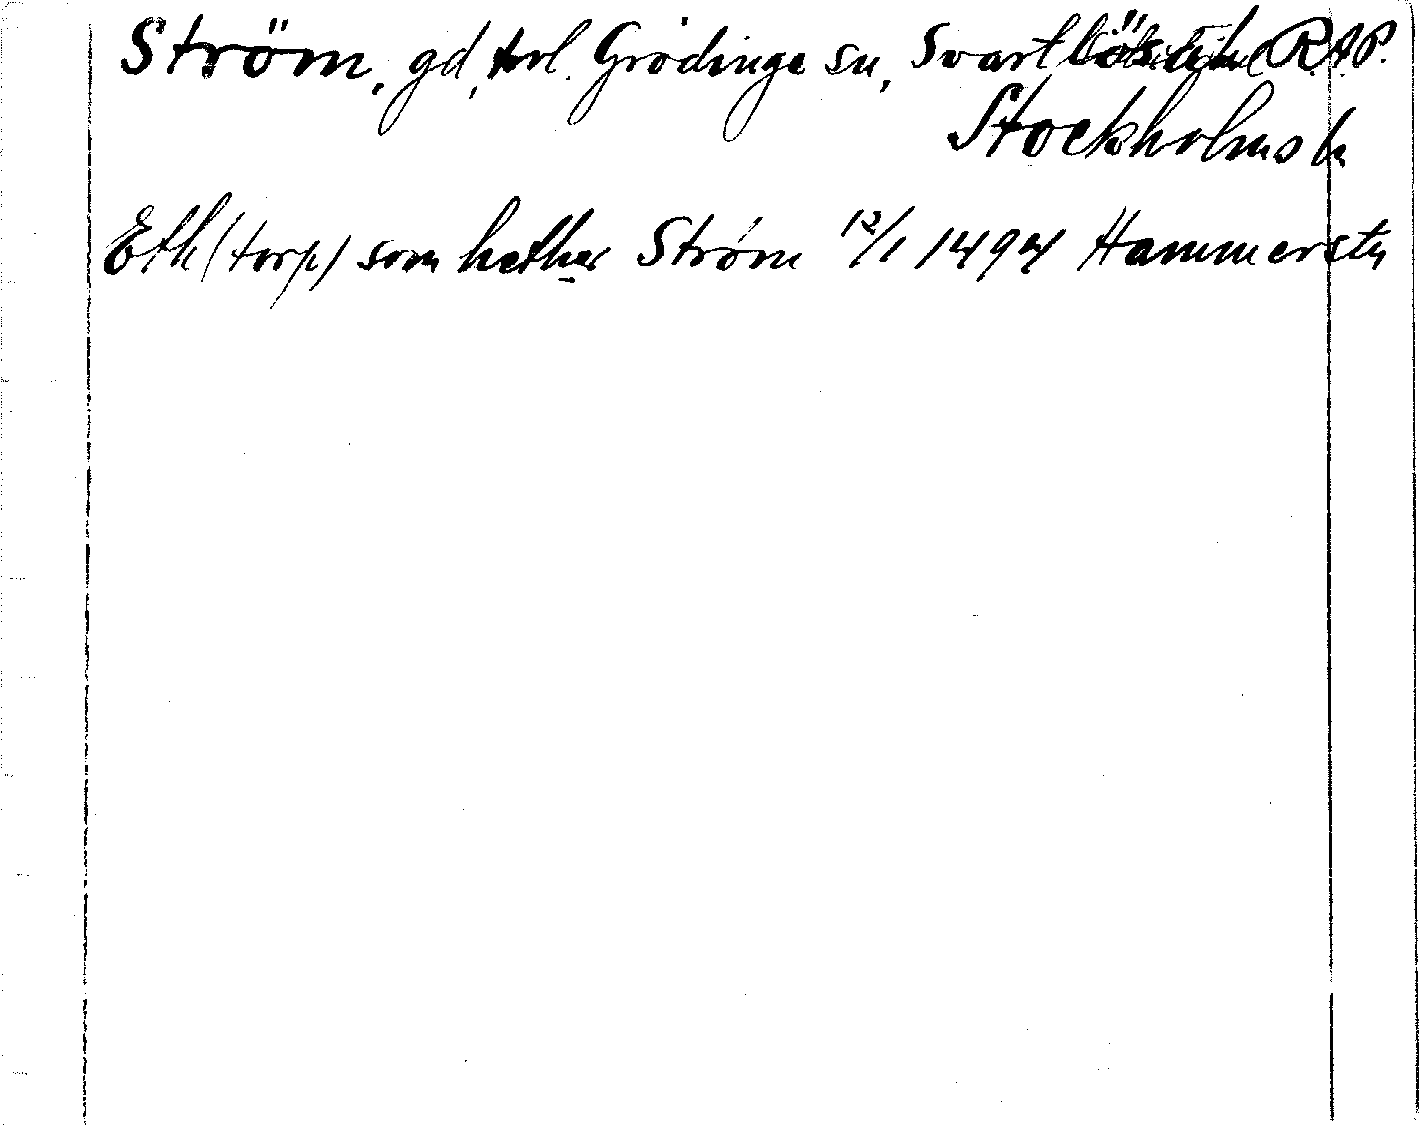 Ström, gd, förl. Grödinge sn, Svartlösa hd R.A.P.
Stockholms ln
Eth (torp) som hether Strøm 12/1 1494 Hammersta